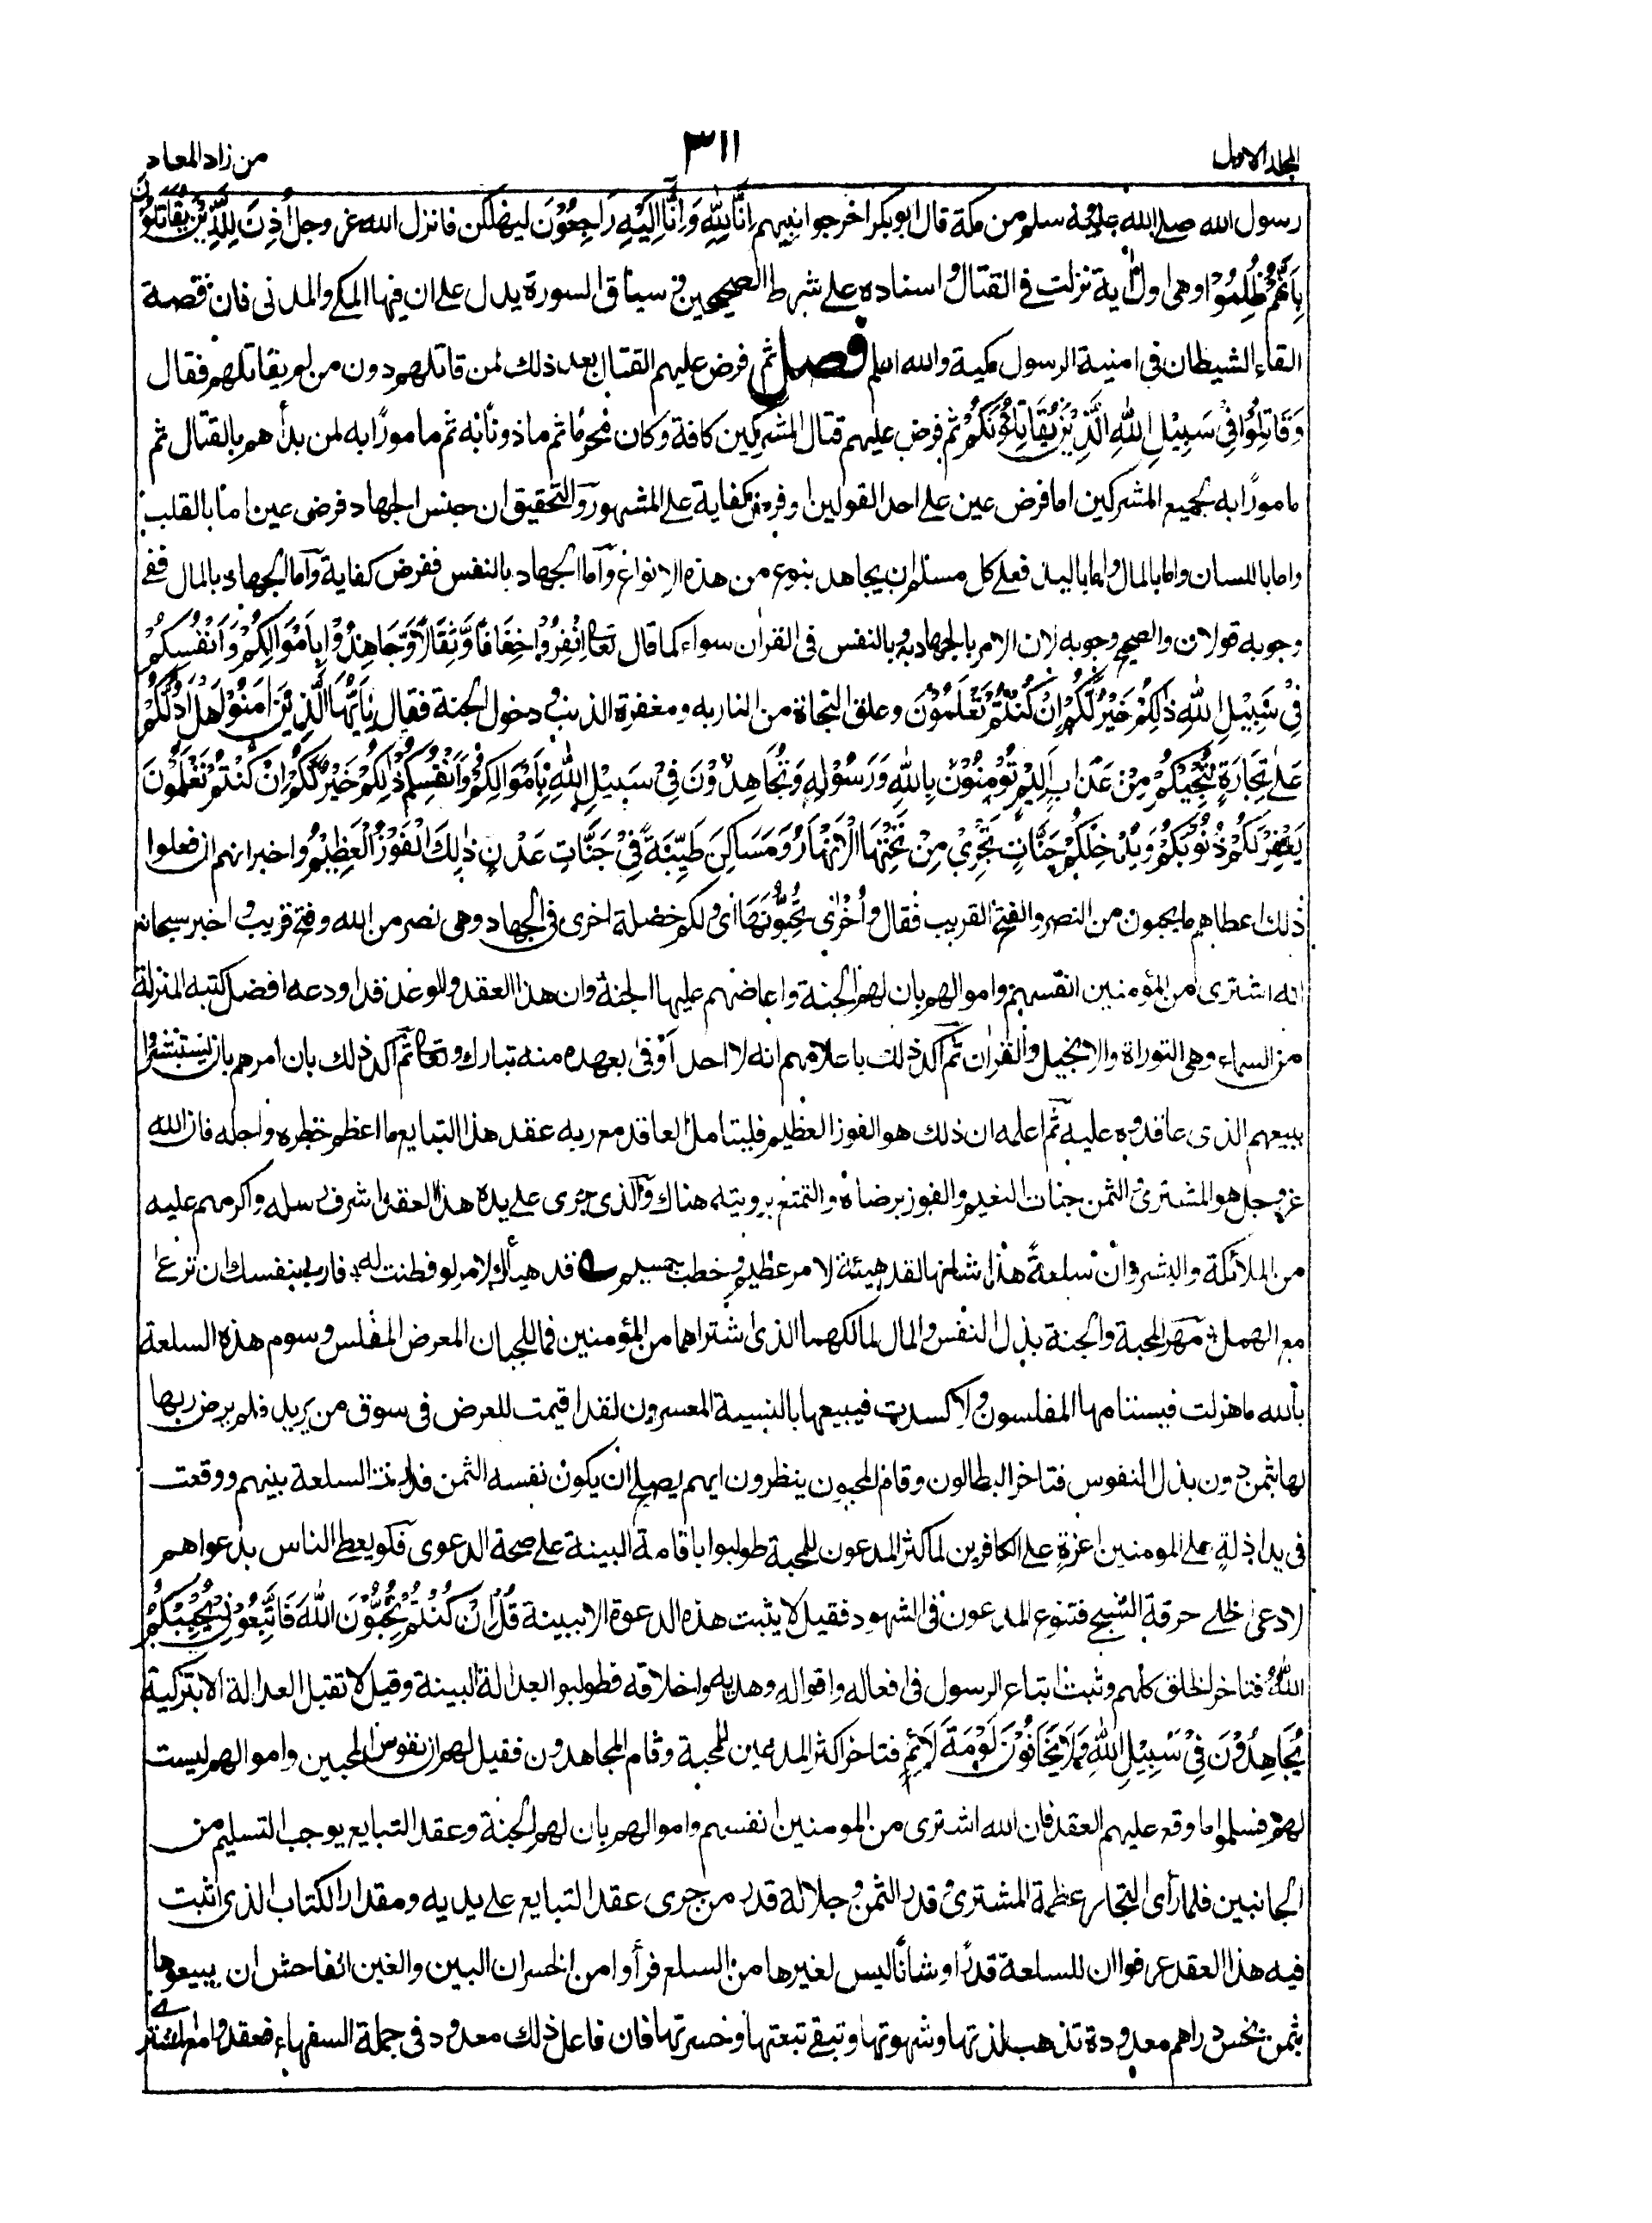 المجلد الاول
٣١١
من زاد المعاد
رسول الله صلے الله عليه وسلم من مكة قال ابو بكر اخرجوا نبيهم اِنَّا لِلّٰهِ وَاِنَّا اِلَيْهِ رَاجِعُوْنَ ليهلكن فانزل الله عز وجل اُذِنَ لِلَّذِيْنَ يُقَاتَلُوْنَ
بِاَنَّهُمْ ظُلِمُوْا وهى اول اٰية نزلت فى القتال واسناده علے شرط الصحيحين فى سياق السورة يدل علے ان فيها المكى والمدنى فان قصة
القاء الشيطان فى امنية الرسول مكية والله اعلم فصل ثم فرض عليهم القتال بعد ذلك لمن قاتلهم دون من لم يقاتلهم فقال
وَقَاتِلُوْا فِىْ سَبِيْلِ اللّٰهِ الَّذِيْنَ يُقَاتِلُوْنَكُمْ ثم فرض عليهم قتال المشركين كافة وكان محرمًا ثم ماذونًا به ثم مامورًا به لمن بدأهم بالقتال ثم
مامورًا به لجميع المشركين اما فرض عين علے احد القولين او فرض كفاية علے المشهور والتحقيق ان جنس الجهاد فرض عين اما بالقلب
واما باللسان واما بالمال واما باليد فعلے كل مسلم ان يجاهد بنوع من هذه الانواع واما الجهاد بالنفس ففرض كفاية واما الجهاد بالمال ففے
وجوبه قولان والصحيح وجوبه لان الامر بالجهاد به وبالنفس فى القراٰن سواء كما قال تعالے اِنْفِرُوْا خِفَافًا وَّثِقَالًا وَّجَاهِدُوْا بِاَمْوَالِكُمْ وَاَنْفُسِكُمْ
فِىْ سَبِيْلِ اللّٰهِ ذٰلِكُمْ خَيْرٌ لَّكُمْ اِنْ كُنْتُمْ تَعْلَمُوْنَ وعلق النجاة من النار به ومغفرة الذنب ودخول الجنة فقال يٰاَيُّهَا الَّذِيْنَ اٰمَنُوْا هَلْ اَدُلُّكُمْ
عَلٰے تِجَارَةٍ تُنْجِيْكُمْ مِنْ عَذَابٍ اَلِيْمٍ تُؤْمِنُوْنَ بِاللّٰهِ وَرَسُوْلِهٖ وَتُجَاهِدُوْنَ فِىْ سَبِيْلِ اللّٰهِ بِاَمْوَالِكُمْ وَاَنْفُسِكُمْ ذٰلِكُمْ خَيْرٌ لَّكُمْ اِنْ كُنْتُمْ تَعْلَمُوْنَ
يَغْفِرْ لَكُمْ ذُنُوْبَكُمْ وَيُدْخِلْكُمْ جَنَّاتٍ تَجْرِىْ مِنْ تَحْتِهَا الْاَنْهَارُ وَمَسَاكِنَ طَيِّبَةً فِىْ جَنَّاتِ عَدْنٍ ذٰلِكَ الْفَوْزُ الْعَظِيْمُ واخبر انهم ان فعلوا
ذلك اعطاهم ما يحبون من النصر والفتح القريب فقال وَاُخْرٰى تُحِبُّوْنَهَا اى ولكم خصلة اخرى فى الجهاد وهى نصر من الله وفتح قريب واخبر سبحانه
انه اشترى من المؤمنين انفسهم واموالهم بان لهم الجنة واعاضهم عليها الجنة وان هذا العقد والوعد قد اودعه افضل كتبه المنزلة
من السماء وهى التوراة والانجيل والقراٰن ثم اكد ذلك باعلامهم انه لا احد اوفى بعهده منه تبارك وتعالے ثم اكد ذلك بان امرهم بان يستبشروا
ببيعهم الذى عاقدوه عليه ثم اعلمه ان ذلك هو الفوز العظيم فليتامل العاقد مع ربه عقد هذا التبايع ما اعظم خطره واجله فان الله
عز وجل هو المشترى والثمن جنات النعيم والفوز برضاه والتمتع برويته هناك والذى جرى على يده هذا العقد اشرف رسله واكرمهم عليه
من الملائكة والبشر وان سلعةً هذا شانها لقد هيئة لامر عظيم وخطب جسيم قد هيأك لامر لو فطنت له فاربأ بنفسك ان ترعى
مع الهمل مهر المحبة والجنة بذل النفس والمال لمالكهما الذى اشتراهما من المؤمنين فما للجبان المعرض المفلس وسوم هذه السلعة
بالله ما هزلت فيستامها المفلسون ولا كسدت فيبيعها بالنسية المعسرون لقد اقيمت للعرض فى سوق من يريد فلم يرض ربها
لها بثمن دون بذل النفوس فتاخر البطالون وقام المحبون ينظرون ايهم يصلح ان يكون نفسه الثمن فدارت السلعة بينهم ووقعت
فى يد اذلةٍ علے المومنين اعزةٍ علے الكافرين لما كثر المدعون للمحبة طولبوا باقامة البينة علے صحة الدعوى فلو يعطے الناس بدعواهم
لادعى الخلے حرقة الشجے فتنوع المدعون فى الشهود فقيل لا يثبت هذه الدعوة الا ببينة قُلْ اِنْ كُنْتُمْ تُحِبُّوْنَ اللّٰهَ فَاتَّبِعُوْنِىْ يُحْبِبْكُمُ
اللّٰهُ فتاخر الخلق كلهم وثبت اتباع الرسول فى افعاله واقواله وهديه واخلاقه فطولبوا بعدالة البينة وقيل لا تقبل العدالة الا بتزكية
يُجَاهِدُوْنَ فِىْ سَبِيْلِ اللّٰهِ وَلَا يَخَافُوْنَ لَوْمَةَ لَائِمٍ فتاخر اكثر المدعين للمحبة وقام المجاهدون فقيل لهم ان نفوس المحبين واموالهم ليست
لهم فسلموا ما وقع عليهم العقد فان الله اشترى من المومنين انفسهم واموالهم بان لهم الجنة وعقد التبايع يوجب التسليم من
الجانبين فلما رأى التجار عظمة المشترى وقدر الثمن وجلالة قدر من جرى عقد التبايع علے يديه ومقدار الكتاب الذى اثبت
فيه هذا العقد عرفوا ان للسلعة قدرًا وشانًا ليس لغيرها من السلع فرأوا من الخسران البين والغبن الفاحش ان يبيعوها
بثمن بخس دراهم معدودة تذهب لذتها وشهوتها وتبقے تبعتها وحسرتها فان فاعل ذلك معدود فى جملة السفهاء فعقدوا مع المشترے